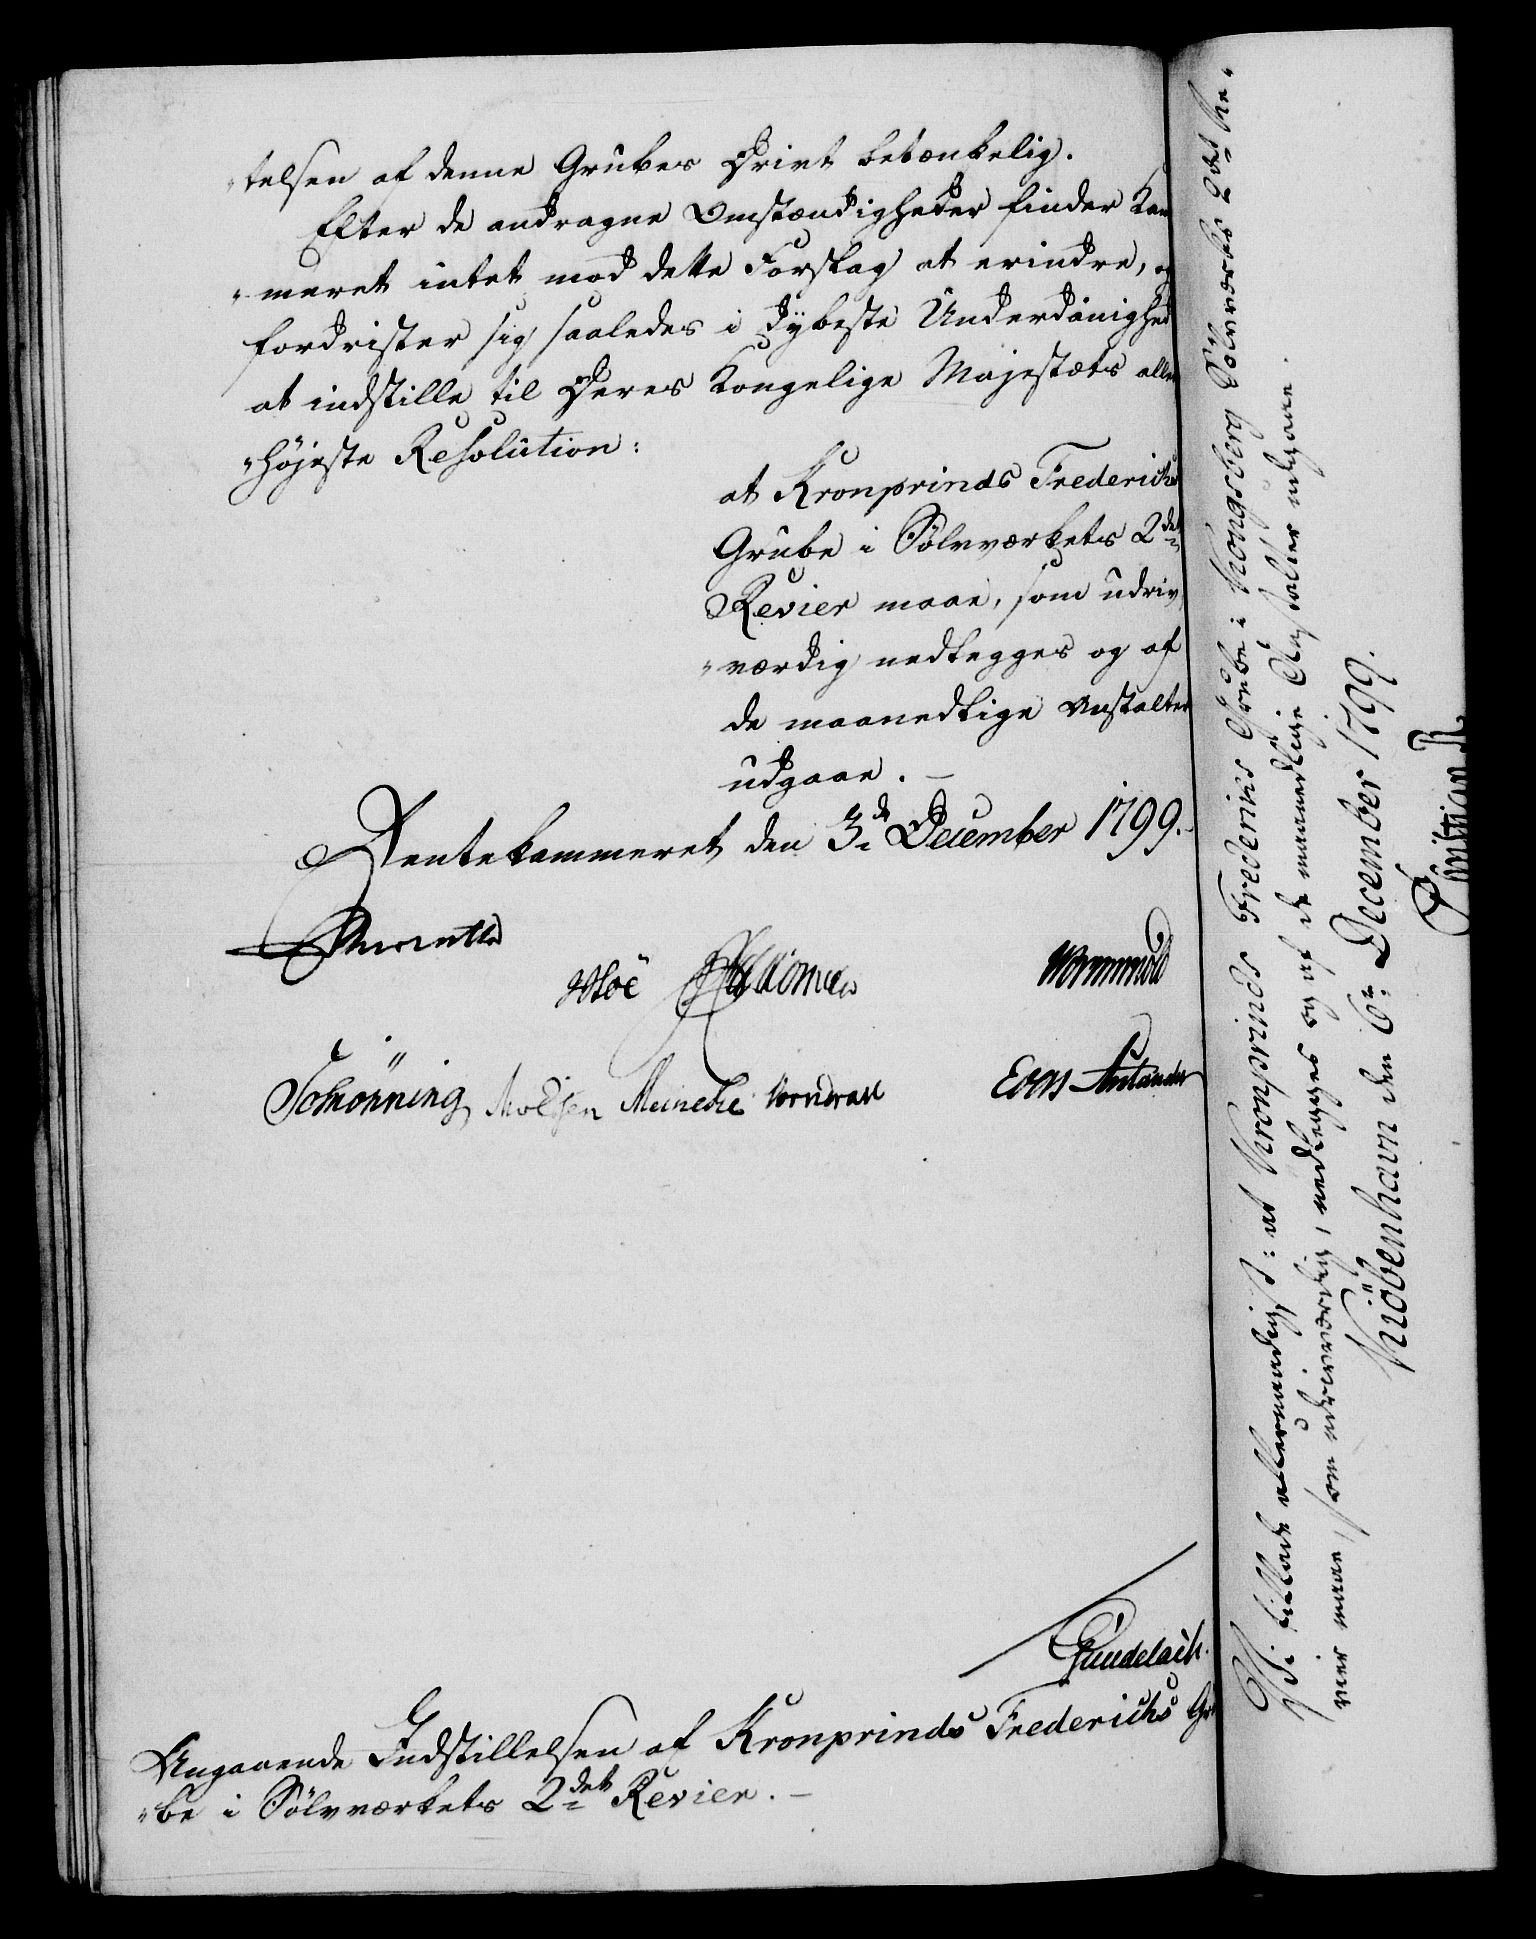 „telsen af denne Grubes Drivt betænkelig.
Efter de andragne Omstændigheder finder Kam
„meret intet mod dette Forslag at erindre, og
fordrister sig saaledes i dybeste Underdanighed
at indstille til Deres Kongelige Majestæts aller
„højeste Resolution:
at Kronprinds Frederichs
Grube i Sölvværkets 2det
Revier maae, som udriv
„værdig nedlægges og af
de maanedlige Anstalter
udgaae. –
Rentekammeret den 3d December 1799.
Schönning Meinche Wormskiold
Gundelach.
Angaaende Indstillelsen af Kronprinds Frederichs Gru
„be i Sölvværkets 2det Revier. –
Vi tillade allernaadigst: at Kronprinds Frederics Grube i Kongsberg Sölvværkes 2det Re„
vier maae, som udrivværdig, nedlægges og af de maanedlige Anstalter udgaae.
Kiöbenhavn den 6te December 1799.
Christian R